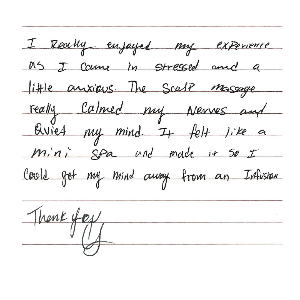 I Really enjoyed my experience
as I came in stressed and a
little anxious. The Scalp massage
really Calmed my Nerves and
Quiet my mind. It felt like a
mini spa and made it so I
Could get my mind away from an Infusion
Thank you